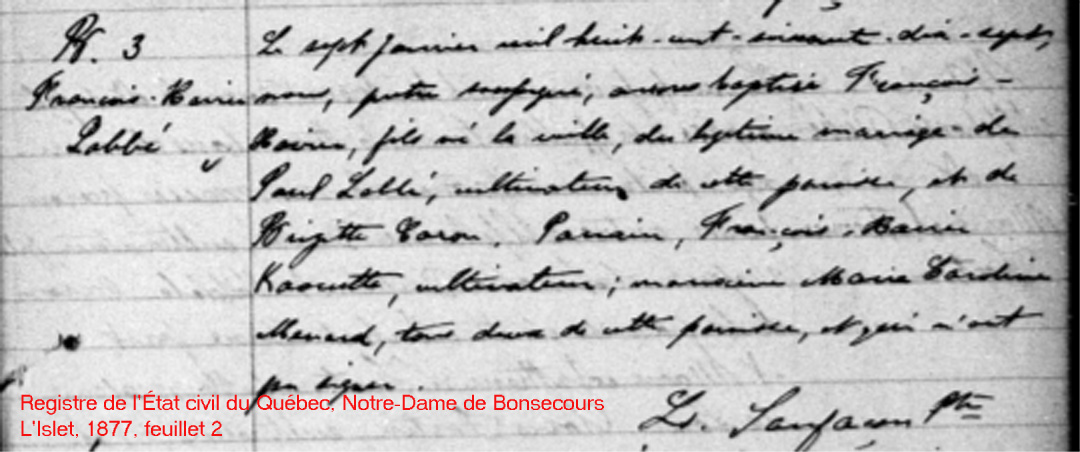 B. 3
François-Xavier
Labbé
Le sept janvier mil huit-cent-soixante-dix-sept,
nous, prêtre soussigné, avons baptisé François-
Xavier, fils né la veille, du légitime mariage de
Paul Labbé, cultivateur de cette paroisse, et de
Brigitte Caron. Parrain, François-Xavier
cultivateur; marraine Marie Caroline
Menard, tous deux de cette paroisse, et qui n'ont
pu signer.
Ptre
Registre de l'État civil du Québec, Notre-Dame de Bonsecours
L'Islet, 1877, feuillet 2